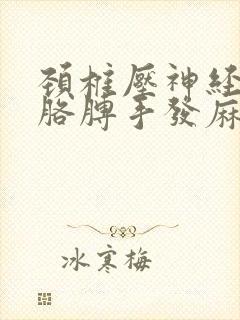 頚椎壓神経
胳膊手發麻
冰寒梅